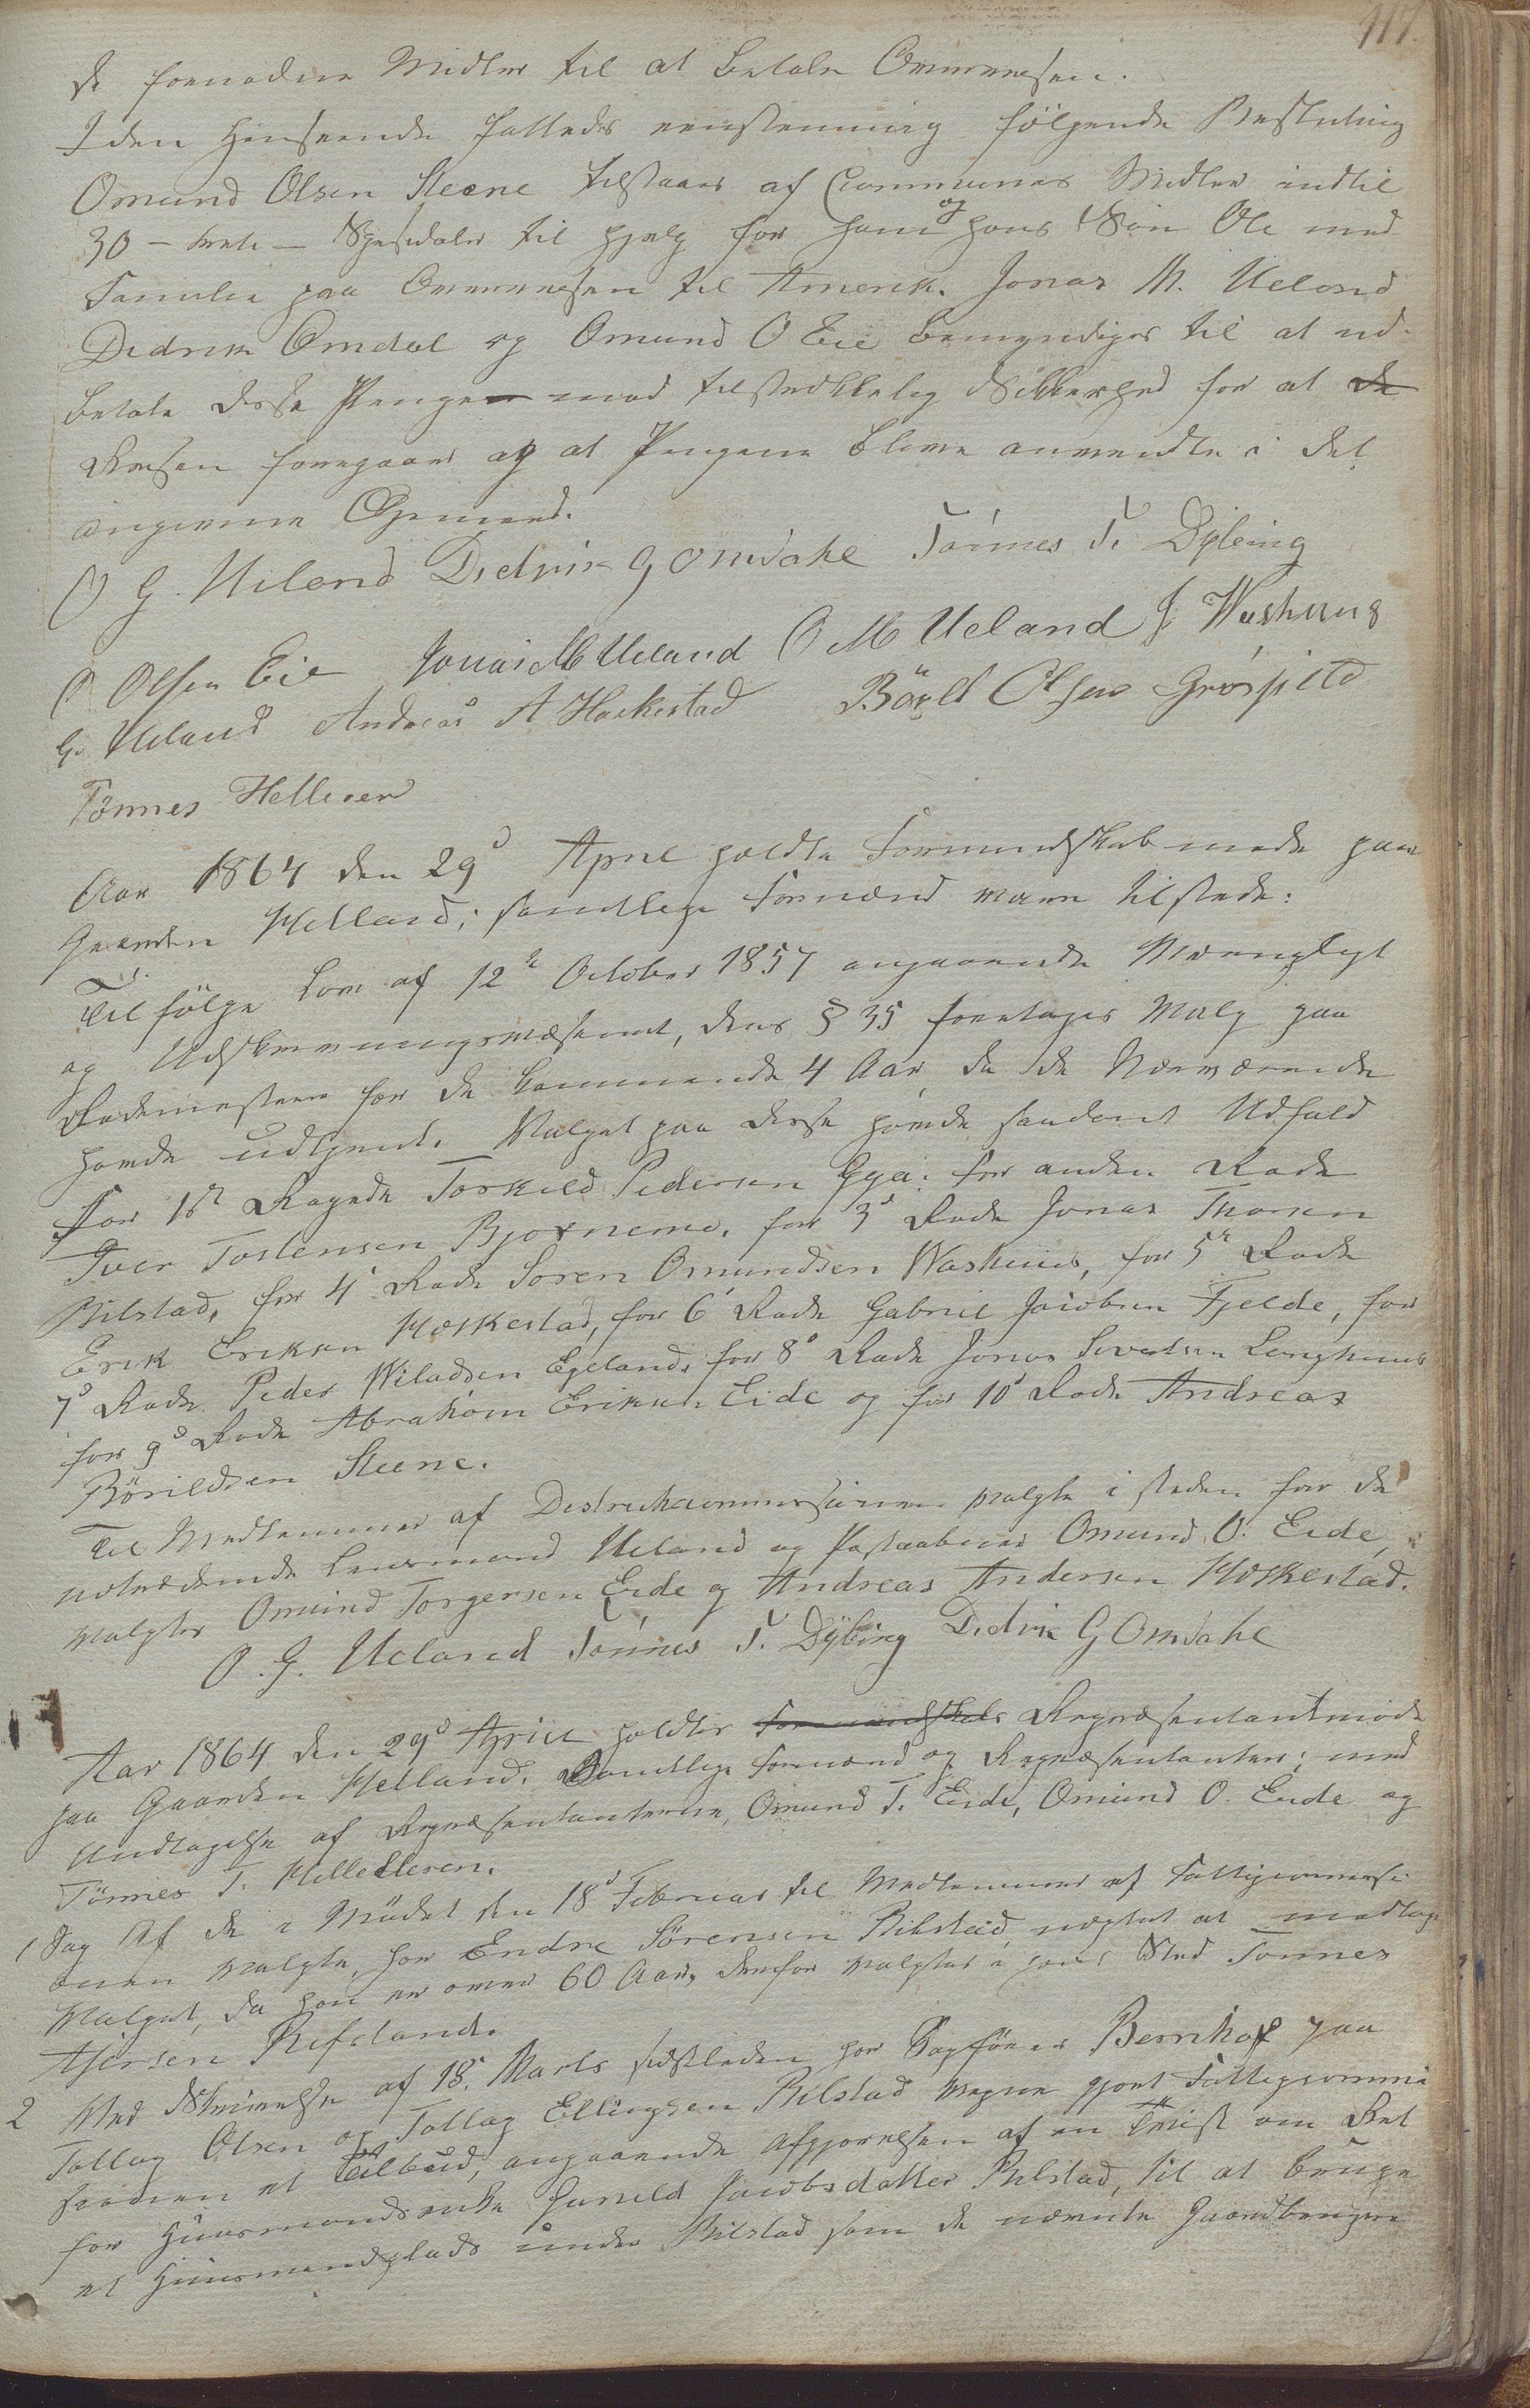 117.
de fornødne Midler til at betale Overreisen.
I den Henseende fattedes eenstemmig følgende Beslutning
Omund Olsen Steene tilstaaes af Communens Midler indtil
30 - treti - Spesidaler til Hjelp for ham og hans Søn Ole med
Familie paa Overreisen til Amerik. Jonas M. Ueland
Didrik Omdal og Omund O Eie bemyndiges til at ud-
betale disse Penge mod tilstrekkelig Sikkerhed for at de
Reisen foregaar og at Pengene blive anvendte i det
angivne Øiemed.
O G. Ueland Didrik G Omdahl Tönnes T. Dybing
O Olsen Eie Jonas M Ueland O M Ueland J. Washuus
G. Ueland Andreas A Haskestad Börild Olsen Grøsfield
Tönnes Helleren
Aar 1864 den 29d April holdtes Formandskabmøde paa
Gaarden Helland; samtlige Formænd vare tilstede:
Til følge Lov af 12te October 1857 angaaende Værnepligt
og Udskrivningsvæsenet, dens § 35 foretoges Valg paa
Rodemestere for de kommende 4 Aar, da de Nærværende
havde udtjent. Valget paa disse havde saadant Udfald
For 1ste Rode Torkild Pedersen Ege: for anden Rode
Iver Tostensen Bjørnemo, for 3d Rode Jonas Thorsen
Bilstad, for 4' Rode Soren Omundsen Washuus, for 5te Rode
Erik Eriksen Haskestad, for 6' Rode Gabriel Jacobsen Fjelde, for
7d Rode Peder Wiladsen Egeland, for 8d Rode Jonas Sivertsen Lenghuus
for 9d Rode Abraham Eriksen Eide og for 10' Rode Andreas
Börildsen Steene.
Til Medlemmer af Districtscommissionen valgte i steden for de
udtrædende Lensmand Ueland og Postaabner Omund O. Eide,
valgtes Omund Torgersen Eide og Andreas Andersen Haskestad.
O. G. Ueland Tönnes T. Dÿbing Didrik G Omdahl
Aar 1864 den 29d April holdtes Formandskabs Repræsentantmøde
paa Gaarden Helland. Samtlige Formænd og Repræsentanter; med
Undtagelse af Repræsentanterne, Omund T. Eide, Omund O. Eide og
Tönnes T. Helleren.
1 Sag Af de i Mødet den 18d Februar til Medlemmer af Fattigcommissi-
onen valgte, har Endre Sörensen Bilstad nægtet at modtage
Valget, da han er over 60 Aar, derfor valgtes i hans Sted Tönnes
Ajersen Refsland.
2 Ved Skrivelse af 18. Marts sidstleden har Sagfører Bernhoft paa
Tollag Olsen og Tollag Ellingsen Bilstad Vegne gjort Fattigcommis
sionen et Tilbud, angaaende Afgjørelsen af en Tvist om Ret
for Huusmandsenke Gunild Jacobsdatter Bilstad, til at bruge
et Huusmandsplads under Bilstad som de nævnte Gaardbrugere